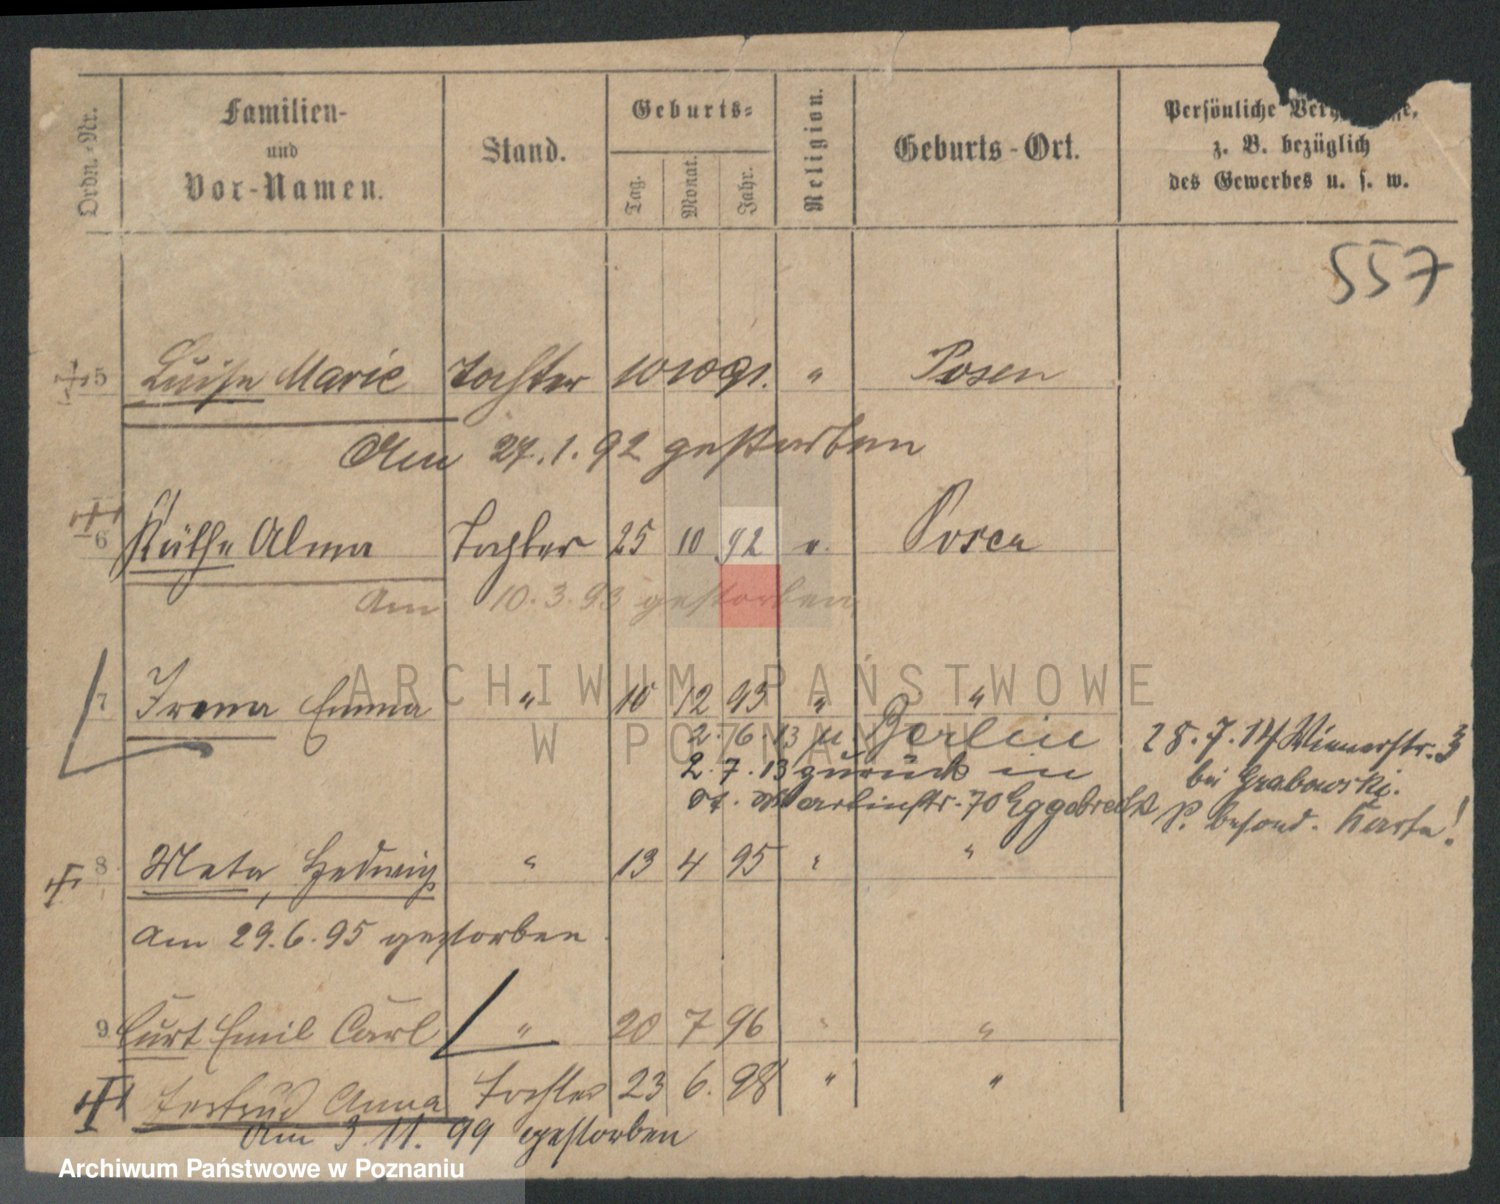 Ordn.-Nr. Familien- und Vor-Namen. Stand. Geburts- Tag. Monat. Jahr. Religion. Geburts-Ort. Persönliche
z. B. bezüglich
des Gewerbes u. s. w.
557
5 Luise Marie Tochter 10 10 91. " Posen
Am 27.1.92 gestorben
6 Käthe Alma Tochter 25 10 92 " Posen
Am 10.3.93 gestorben
7 Irena Emma " 10 12 93 " "
2.6.13 n Berlin
28.7.14 Wienerstr. 3
2.7.13 zurück in
bei Grabowski.
St. Martinstr. 70 Eggebrecht
besond. Karte!
8 Meta, Hedwig " 13 4 95 " "
Am 29.6.95 gestorben.
9 Curt Emil Carl " 20 7 96 " "
Gertrud Anna Tochter 23 6. 98 " "
Am 3.11.99 gestorben
ARCHIWUM PAŃSTWOWE
W POZNANIU
Archiwum Państwowe w Poznaniu